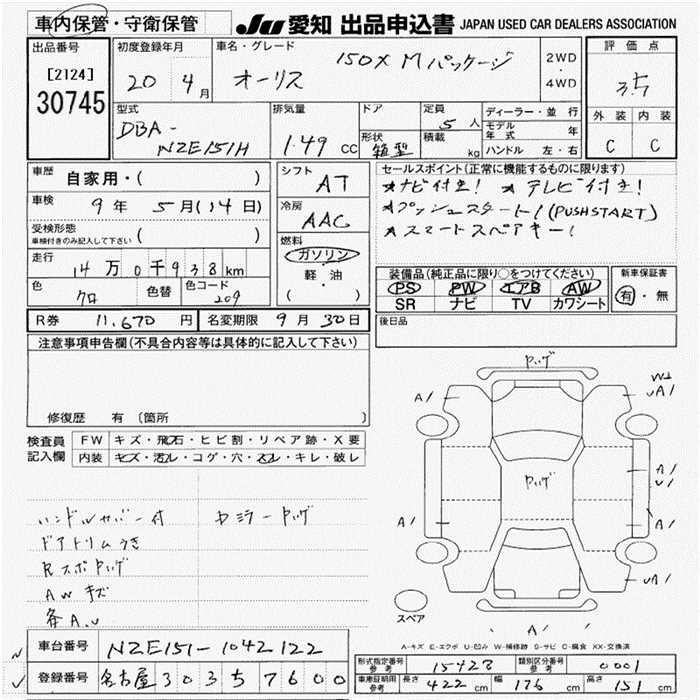 車内保管・守衛保管
JU 愛知 出品申込書 JAPAN USED CAR DEALERS ASSOCIATION
出品番号
[2124]
30745
初度登録年月
20 年 4 月
車名・グレード
オーリス 150X Mパッケージ
2WD
4WD
評価点
3.5
外装 内装
C C
型式
DBA-
NZE151H
排気量
1.49 cc
ドア
形状
箱型
定員
5 人
積載
kg
ディーラー・並行
モデル年式 年
ハンドル 左・右
車歴
自家用・( )
車検
9 年 5 月(14日)
受検形態
車検付きのみ記入して下さい ( )
走行
14 万 0 千 938 km
色
クロ
色替
色コード
209
シフト
AT
冷房
AAC
燃料
ガソリン
軽・油
( )
セールスポイント(正常に機能するものに限ります)
★ナビ付き! ★テレビ付き!
★プッシュスタート!(PUSHSTART)
★スマートスペアキー!
装備品(純正品に限り○をつけてください)
PS PW エアB AW
SR ナビ TV カワシート
新車保証書
有・無
後日品
R券 11,670 円
名変期限 9 月 30 日
注意事項申告欄(不具合内容等は具体的に記入して下さい)
修復歴 有 〔箇所
検査員記入欄
FW キズ・飛石・ヒビ割・リペア跡・X要
内装 キズ・汚レ・コゲ・穴・スレ・キレ・破レ
ハンドルカバー付
ドアトリムうき
Rスポヤッゲ
AWキズ
各A.U
カミラーヤッゲ
ヤッゲ
A1
A1
ヤッゲ
A1
A1
A1
UA1
A1
スペア
A-キズ E-エクボ U-凹み W-補修跡 S-サビ C-腐食 XX-交換済
車台番号 NZE151-1042122
登録番号 名古屋 303 5 7600
形式指定番号 参考 15423
類別区分番号 参考 0001
車庫証明用 参考 長さ 422 cm 幅 176 cm 高さ 151 cm